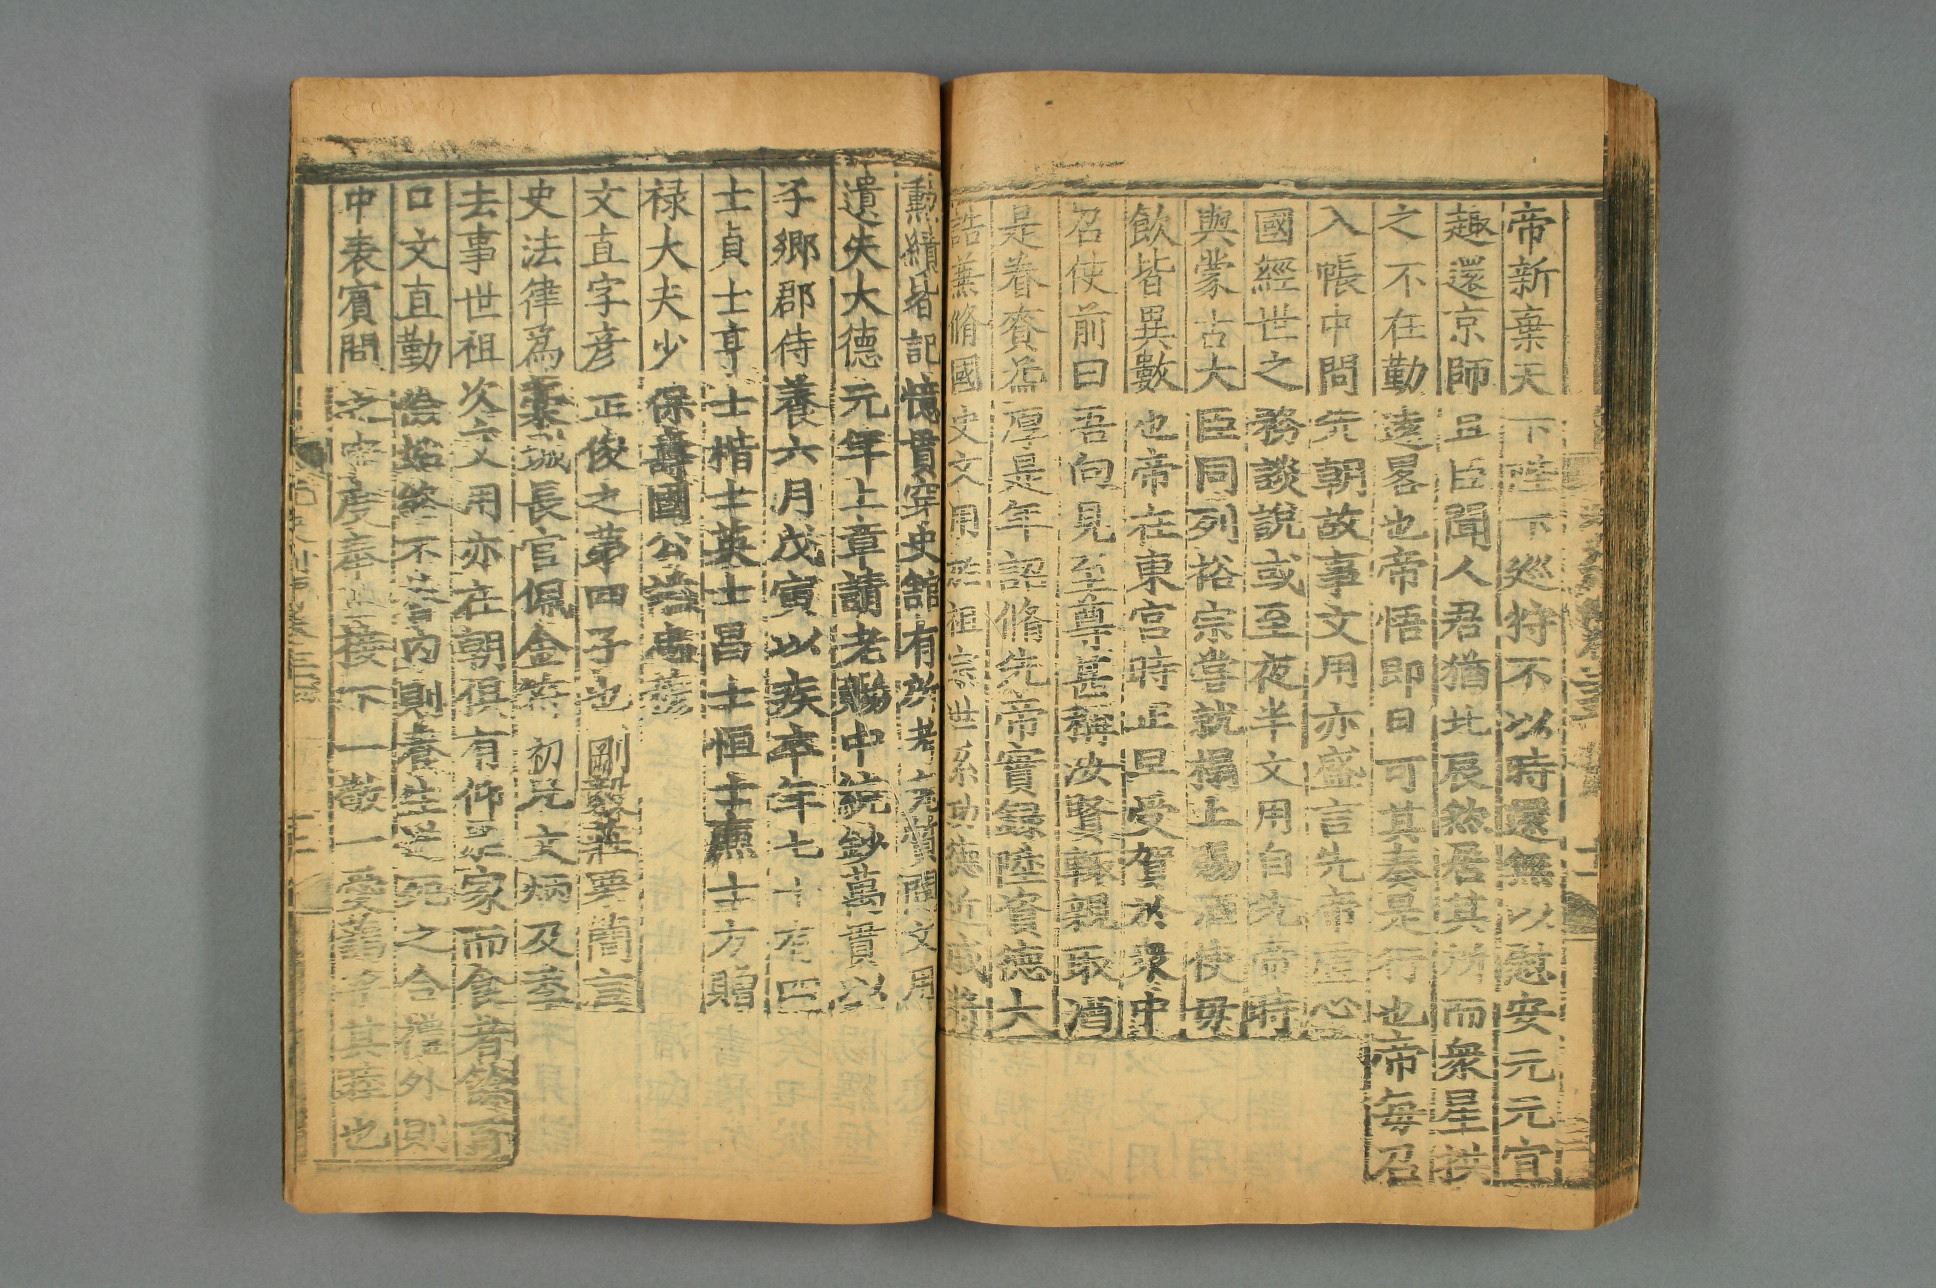 帝新棄天下陛下巡狩不以時還無以慰安元元宜
趣還京師且臣聞人君猶北辰然居其所而衆星拱
之不在勤遠畧也帝悟即日可其奏是行也帝每召
入帳中問先朝故事文用亦盛言先帝虛心
國經世之務談說或至夜半文用自先帝時
與蒙古大臣同列裕宗嘗就榻上賜酒使毋
飲皆異數也帝在東宮時正旦受賀於衆中
召使前曰吾向見至尊甚稱汝賢輒親取酒
是眷賚益厚是年詔脩先帝實錄陞資德大
誥兼脩國史文用於祖宗世系功德近戚將
勲績皆記憶貫穿史舘有所考究質問文用
遺失大德元年上章請老賜中統鈔萬貫以
子鄉郡侍養六月戊寅以疾卒年七十有四
士貞士亨士楷士英士昌士恒士廉士方贈
禄大夫少保壽國公諡忠穆
文直字彦正俊之第四子也剛毅莊重簡言
史法律爲藁城長官佩金符初兄文炳及
去事世祖次文用亦在朝俱有仰家而食者餘百
口文直勤儉始終不吝內則養生送死之合禮外則
中表賓問之往接下一敬一愛其睦也